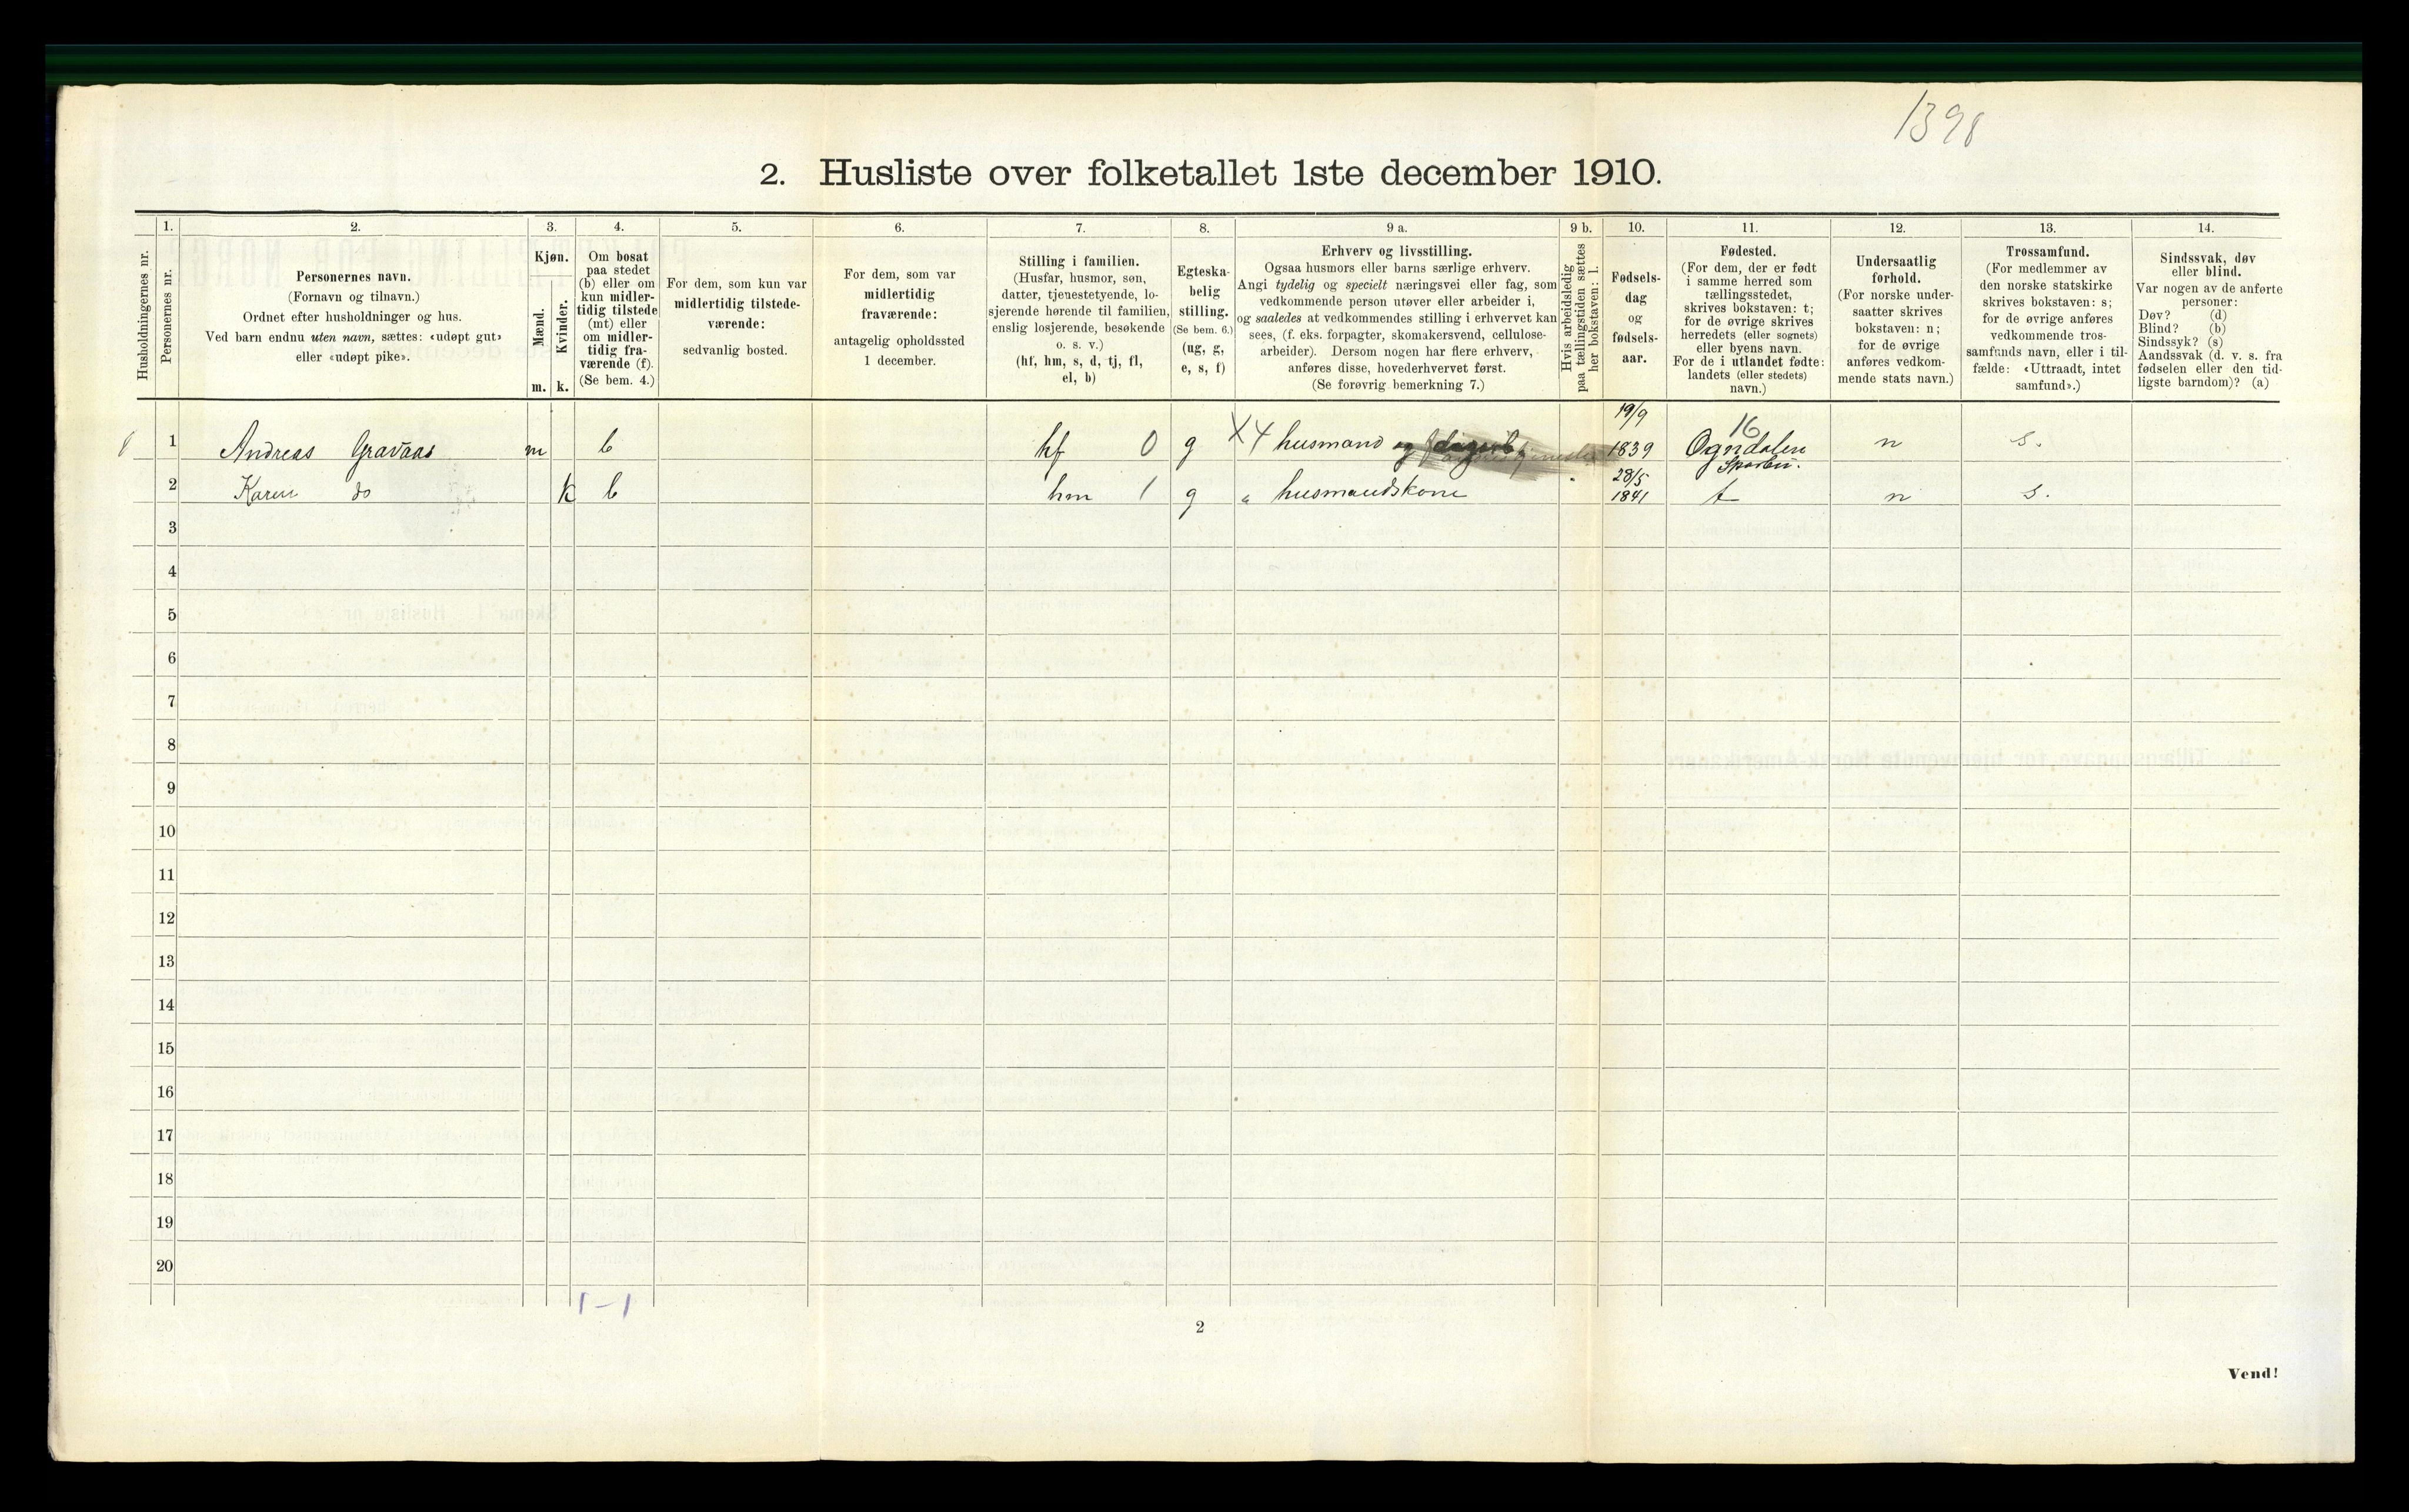 1398
2. Husliste over folketallet 1ste december 1910.
Husholdningernes nr.
1.
Personernes nr.
2.
Personernes navn.
(Fornavn og tilnavn.)
Ordnet efter husholdninger og hus.
Ved barn endnu uten navn, sættes: «udøpt gut»
eller «udøpt pike».
3.
Kjøn.
Mænd.
m.
Kvinder.
k.
4.
Om bosat
paa stedet
(b) eller om
kun midler-
tidig tilstede
(mt) eller
om midler-
tidig fra-
værende (f).
(Se bem. 4.)
5.
For dem, som kun var
midlertidig tilstede-
værende:
sedvanlig bosted.
6.
For dem, som var
midlertidig
fraværende:
antagelig opholdssted
1 december.
7.
Stilling i familien.
(Husfar, husmor, søn,
datter, tjenestetyende, lo-
sjerende hørende til familien,
enslig losjerende, besøkende
o. s. v.)
(hf, hm, s, d, tj, fl,
el, b)
8.
Egteska-
belig
stilling.
(Se bem. 6.)
(ug, g,
e, s, f)
9 a.
Erhverv og livsstilling.
Ogsaa husmors eller barns særlige erhverv.
Angi tydelig og specielt næringsvei eller fag, som
vedkommende person utøver eller arbeider i,
og saaledes at vedkommendes stilling i erhvervet kan
sees, (f. eks. forpagter, skomakersvend, cellulose-
arbeider). Dersom nogen har flere erhverv,
anføres disse, hovederhvervet først.
(Se forøvrig bemerkning 7.)
9 b.
Hvis arbeidsledig
paa tællingstiden sættes
her bokstaven: l.
10.
Fødsels-
dag
og
fødsels-
aar.
11.
Fødested.
(For dem, der er født
i samme herred som
tællingsstedet,
skrives bokstaven: t;
for de øvrige skrives
herredets (eller sognets)
eller byens navn.
For de i utlandet fødte:
landets (eller stedets)
navn.)
12.
Undersaatlig
forhold.
(For norske under-
saatter skrives
bokstaven: n;
for de øvrige
anføres vedkom-
mende stats navn.)
13.
Trossamfund.
(For medlemmer av
den norske statskirke
skrives bokstaven: s;
for de øvrige anføres
vedkommende tros-
samfunds navn, eller i til-
fælde: «Uttraadt, intet
samfund».)
14.
Sindssvak, døv
eller blind.
Var nogen av de anførte
personer:
Døv? (d)
Blind? (b)
Sindssyk? (s)
Aandssvak (d. v. s. fra
fødselen eller den tid-
ligste barndom)? (a)
19/9
16
1 Andreas Gravaas m b hf 0 g X4 husmand og 1839 Ogndalen n s.
Sparbu.
28/5
2 Karen do k b hm 1 g " husmandskone 1841 t n s.
3
4
5
6
7
8
9
10
11
12
13
14
15
16
17
18
19
20
1-1
2
Vend!